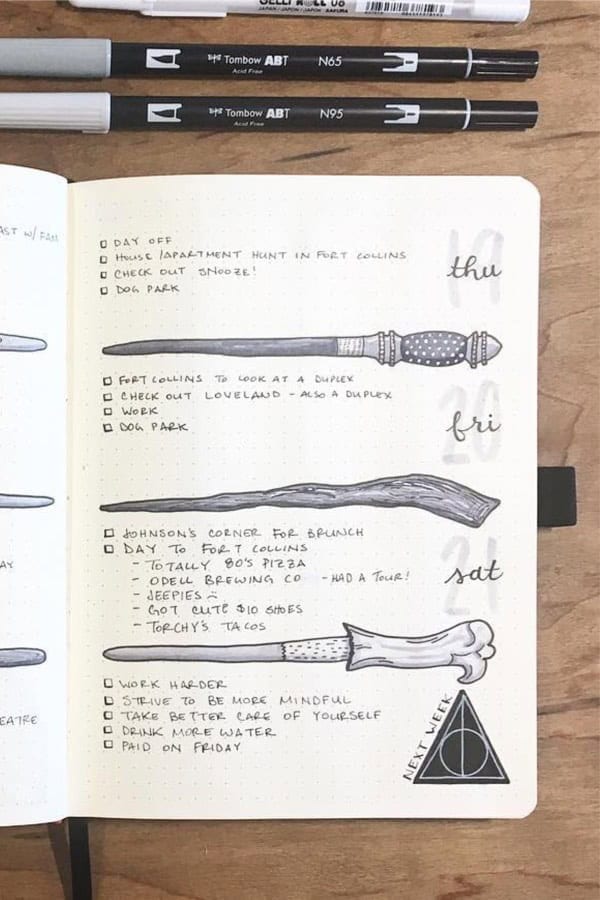 GELLY ROLL 08
JAPAN/JAPON/JAPÓN SAKURA
Tombow ABT N65
Acid Free
Tombow ABT N95
Acid Free
AST W/ FAM
19
DAY OFF
HOUSE/APARTMENT HUNT IN FORT COLLINS
thu
CHECK OUT SNOOZE!
DOG PARK
FORT COLLINS TO LOOK AT A DUPLEX
20
CHECK OUT LOVELAND - ALSO A DUPLEX
WORK
fri
DOG PARK
JOHNSON'S CORNER FOR BRUNCH
21
DAY TO FORT COLLINS
- TOTALLY 80'S PIZZA
AY
- ODELL BREWING CO - HAD A TOUR!
sat
- JEEPIES
- GOT CUTE $10 SHOES
- TORCHY'S TACOS
WORK HARDER
STRIVE TO BE MORE MINDFUL
EATRE
TAKE BETTER CARE OF YOURSELF
DRINK MORE WATER
PAID ON FRIDAY
NEXT WEEK